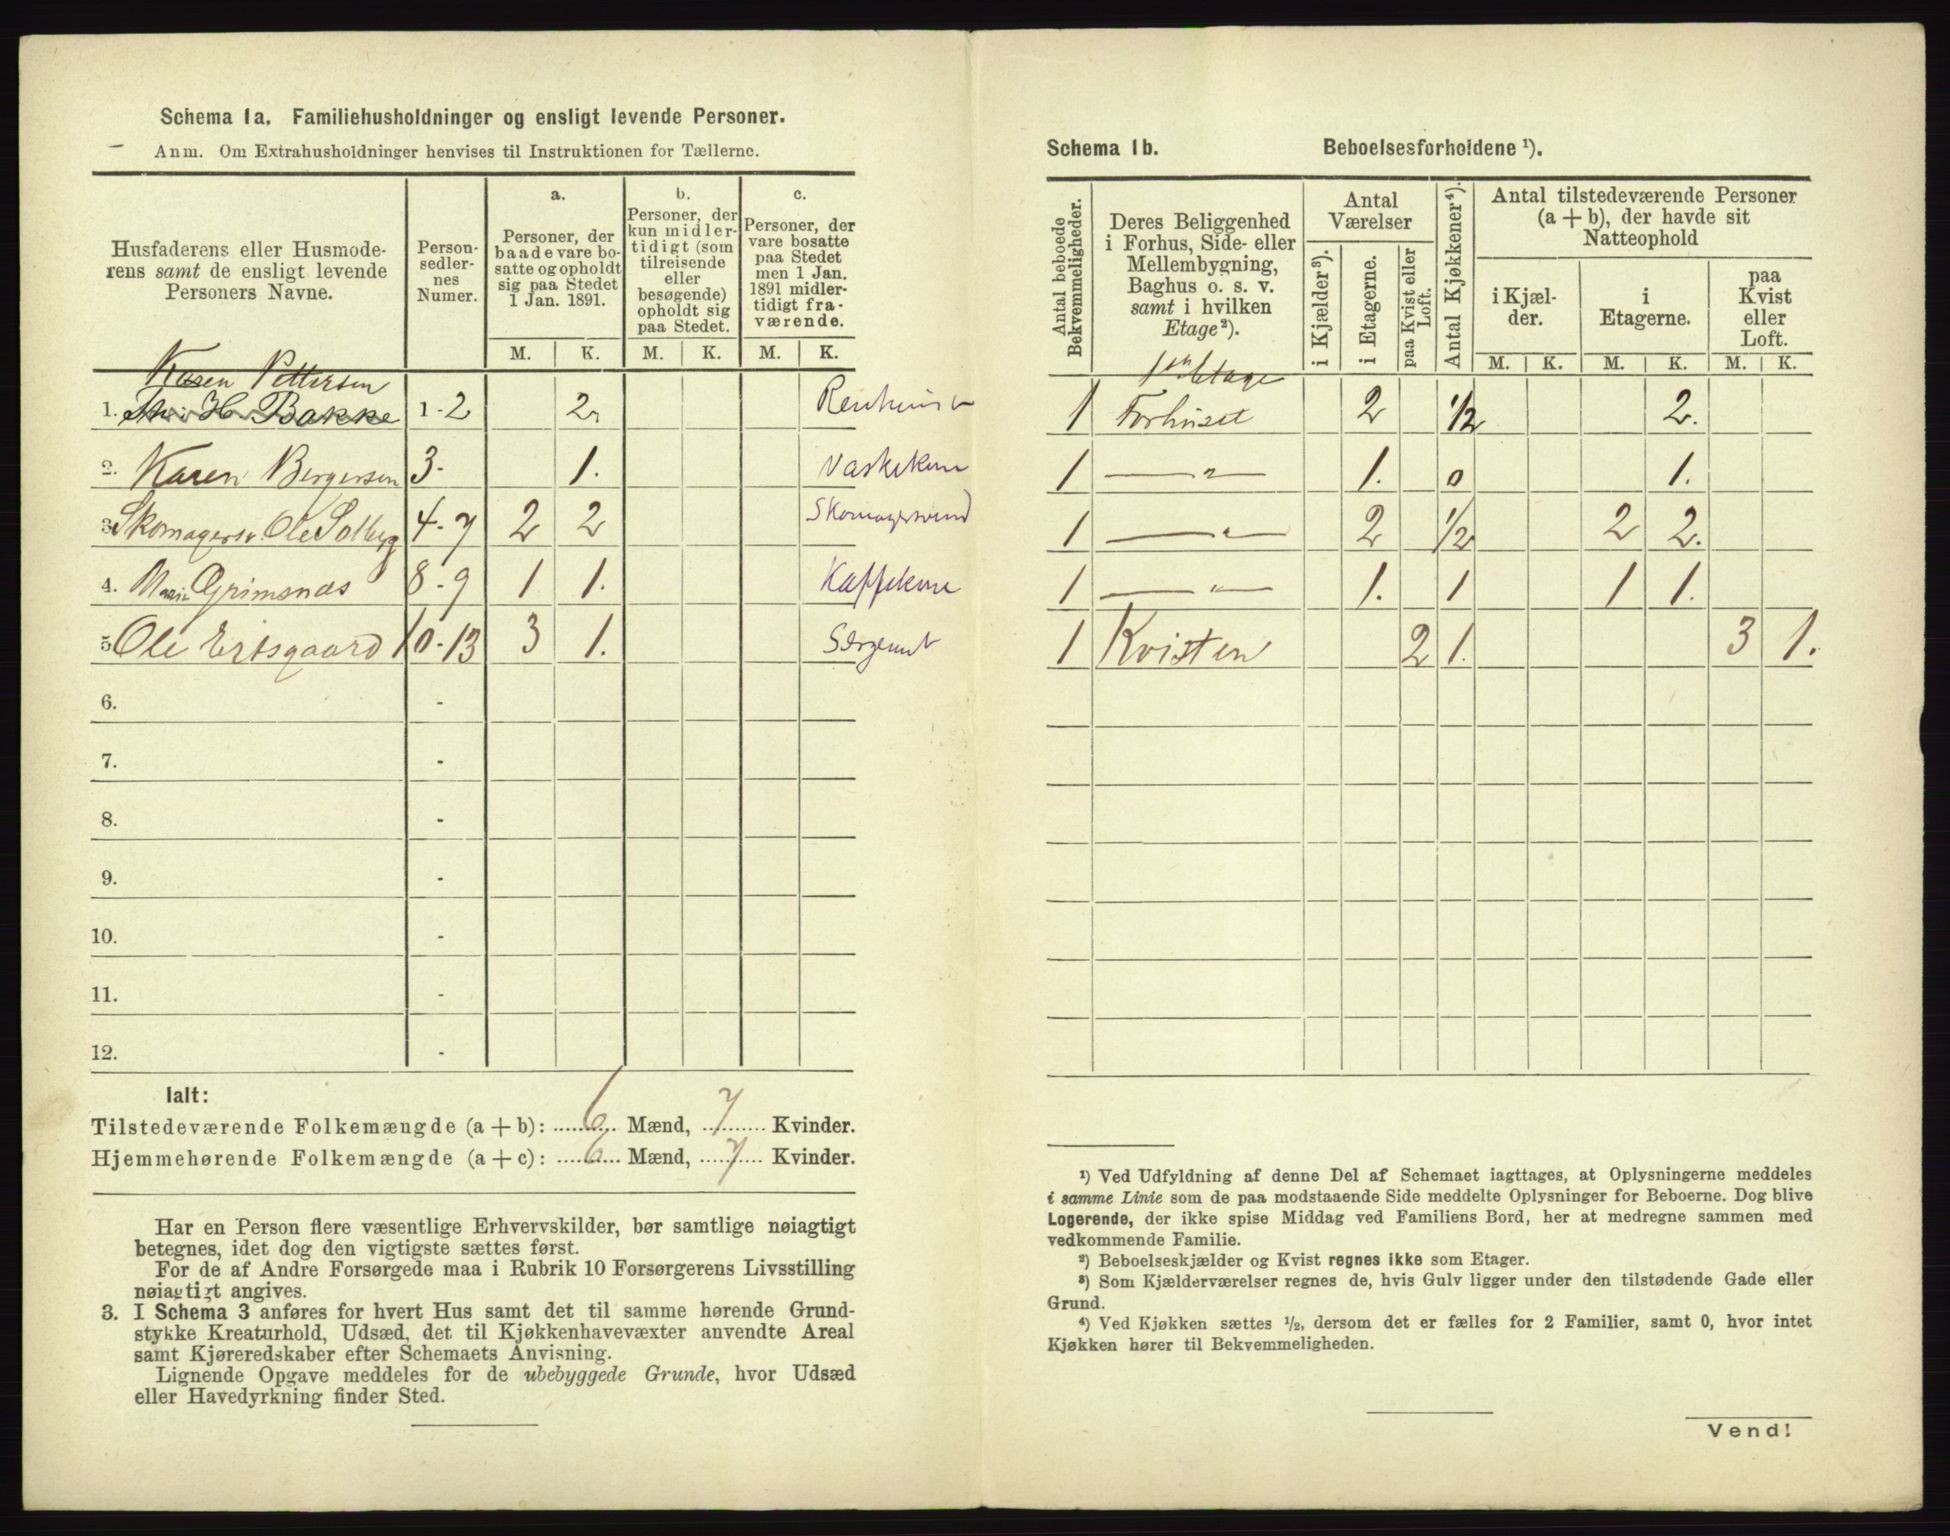 Schema 1a. Familiehusholdninger og ensligt levende Personer.
Anm. Om Extrahusholdninger henvises til Instruktionen for Tællerne.
Husfaderens eller Husmode-
rens samt de ensligt levende
Personers Navne.
Person-
sedler-
nes
Numer.
a.
Personer, der
baade vare bo-
satte og opholdt
sig paa Stedet
1 Jan. 1891.
b.
Personer, der
kun midler-
tidigt (som
tilreisende
eller
besøgende)
opholdt sig
paa Stedet.
c.
Personer, der
vare bosatte
paa Stedet
men 1 Jan.
1891 midler-
tidigt fra-
værende.
M. K. M. K. M. K.
Karen Pettersen
1. H Bakke 1-2 2
2. Karen Bergersen 3- 1. Vaskekone
3. Skomagersv. Ole Solberg 4-7 2 2 Skomagersvend
4. Marie Grimsnæs 8-9 1 1. Kaffekone
5. Ole Ertsgaard 10-13 3 1. Sergeant
6. -
7. -
8. -
9. -
10. -
11. -
12. -
Ialt:
Tilstedeværende Folkemængde (a + b): 6 Mænd, 7 Kvinder.
Hjemmehørende Folkemængde (a + c): 6 Mænd, 7 Kvinder.
Har en Person flere væsentlige Erhvervskilder, bør samtlige nøiagtigt
betegnes, idet dog den vigtigste sættes først.
For de af Andre Forsørgede maa i Rubrik 10 Forsørgerens Livsstilling
nøiagtigt angives.
3. I Schema 3 anføres for hvert Hus samt det til samme hørende Grund-
stykke Kreaturhold, Udsæd, det til Kjøkkenhavevæxter anvendte Areal
samt Kjøreredskaber efter Schemaets Anvisning.
Lignende Opgave meddeles for de ubebyggede Grunde, hvor Udsæd
eller Havedyrkning finder Sted.
Schema 1b. Beboelsesforholdene ¹).
Antal beboede
Bekvemmeligheder.
Deres Beliggenhed
i Forhus, Side- eller
Mellembygning,
Baghus o. s. v.
samt i hvilken
Etage²).
Antal
Værelser
i Kjælder³).
i Etagerne.
paa Kvist eller
Loft.
Antal Kjøkkener⁴).
Antal tilstedeværende Personer
(a + b), der havde sit
Natteophold
i Kjæl-
der.
i
Etagerne.
paa
Kvist
eller
Loft.
M. K. M. K. M. K.
1ste Etage
1 Forhuset 2 1/2 2.
1 — " — 1. 0 1.
1 — " — 2 1/2 2 2.
1 — " — 1. 1 1 1.
1 Kvisten 2 1. 3 1.
¹) Ved Udfyldning af denne Del af Schemaet iagttages, at Oplysningerne meddeles
i samme Linie som de paa modstaaende Side meddelte Oplysninger for Beboerne. Dog blive
Logerende, der ikke spise Middag ved Familiens Bord, her at medregne sammen med
vedkommende Familie.
²) Beboelseskjælder og Kvist regnes ikke som Etager.
³) Som Kjælderværelser regnes de, hvis Gulv ligger under den tilstødende Gade eller
Grund.
⁴) Ved Kjøkken sættes ½, dersom det er fælles for 2 Familier, samt 0, hvor intet
Kjøkken hører til Bekvemmeligheden.
Vend!